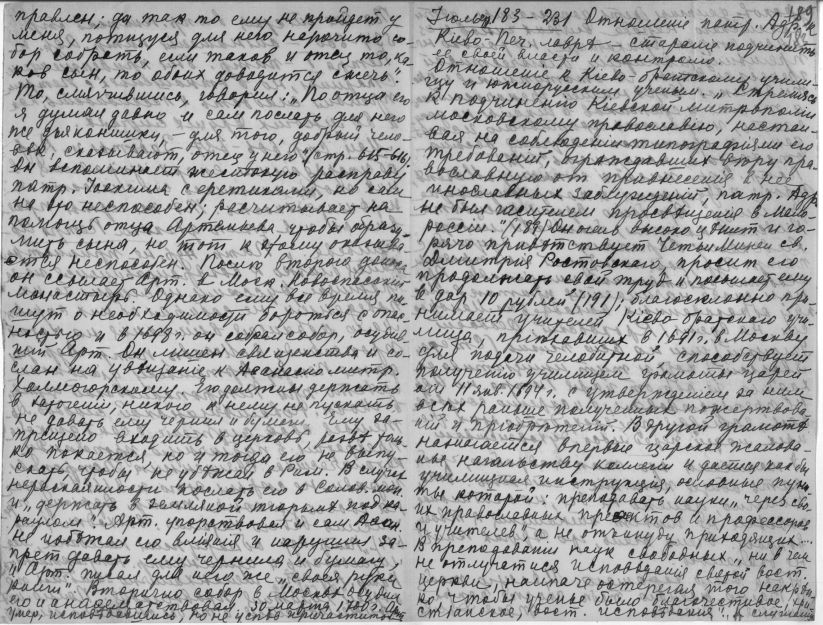 правлен; да так то ему не пройдет у
меня, потщуся для него нарочито со-
бор собрать, если таков и отец то, ка-
ков сын, то обоих доводится сжечь".
То, смягчившись, говорил: "По отца его
я думал давно и сам послать для него
же дьяконишки, – для того, добрый чело-
век, сказывают, отец у него" (стр. 615-616).
Он вспоминает жестокую расправу
патр. Иоакима с еретиками, но сам
на это неспособен; рассчитывает на
помощь отца Артемьева, чтобы образу-
мить сына, но тот к этому оказыва-
ется неспособен. После второго
он ссылает Арт. в Моск. Новоспасский
монастырь. Однако ему все время пи-
шут о необходимости бороться с опас-
ностью и в 1698 г. он собрал собор, осудив-
ший Арт. Он лишен священства и со-
слан на увещание к Афанасию митр.
Холмогорскому. Его должны держать
в заточении, никого к нему не пускать
не давать ему чернил и бумаги. Ему за-
прещено входить в церковь, разве толь-
ко покается, но и тогда его не выпу-
скать, чтобы не убежал в Рим. В случае
нераскаянности послать его в Солов. мон.
и "держать в земляной тюрьме под ка-
раулом". Арт. упорствовал и сам Афан.
не избежал его влияния и нарушил за-
прет давать ему чернила и бумагу,
"Арт. писал для него же "своею рукою
книги". Вторично собор в Москве осудил
его и анафематствовал 30 марта 1700 г. Арт.
умер, исповедавшись, но не успев причаститься
189
Тюльп. 183 – 231 Отношение патр. Адр. к
Киево-Печ. лавре – старание подчинить
ее своей власти и контролю.
Отношение к Киево-братскому учили-
щу и южнорусским ученым. "Стремясь
к подчинению Киевской митрополии
московскому православию, настаи-
вая на соблюдении типографиями его
требований, ограждавших веру пра-
вославную от привнесения в нее
инославных заблуждений, патр. Адр.
не был гасителем просвещения в Мало-
россии." (189) Он очень высоко ценит и го-
рячо приветствует Четьи Минеи св.
Димитрия Ростовского, просит его
продолжать свой труд и посылает ему
в дар 10 рублей (191); благосклонно при-
нимает учителей Киево-братского учи-
лища, приехавших в 1691 г. в Москву
для подачи челобитной, способствует
получению училищем грамоты царей
от 11 янв. 1694 г. с утверждением за ним
всех раньше полученных пожертвова-
ний и приобретений. В другой грамоте
назначается впервые царское жалова-
нье начальству коллегии и дается как бы
училищная инструкция, основные пунк-
ты которой: преподавать науки "через сво-
их православных префектов и профессоров
и учителей", а не откинуду приходящих...
В преподавании наук свободных "ни в чем
не отлучатися исповедания святой вост.
церкви, наипаче остерегая того накреп-
ко, чтобы ученье было благочестивое, хри-
стианское, вост. исповедания",